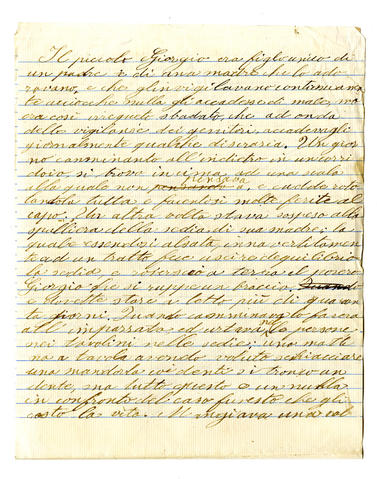 Il piccolo Giorgio era figlo unico di
un padre e di una madre che lo ado
ravano, e che gli vigilavano continuamen
te acciocche nulla gli accadesse di male, ma
era così irrequeto sbadato, che ad onda
della vigilanza dei genitori, accadevagli
giornalmente qualche disgrazia. Un gior
no camminando all'indietro in un corri
doio, si trovò in cima ad una scala
pensava
alla quale non pensando a, e cadde roto
landola tutta e facentosi molte ferite al
capo. Un altra volta stava sospeso alla
spalliera della sedia di sua madre; la
quale essendosi alzata, inavvertitamente
ad un tratto fece uscire dequilibrio
la sedia e rovesciò a terra il povero
Giorgio che si ruppe un braccio. Quand
e dovette stare a lotto più di quaran
ta giorni. Quando camminava lo faceva
all'impazzata ed urtava le persone
nei tavolini nelle sedie; una matti
na a tavola avendo voluto schiacciare
una mandorla coi denti si troncò un
dente, ma tutto questo è un nulla
in confronto del caso funesto che gli
costò la vita. M angiava una vol